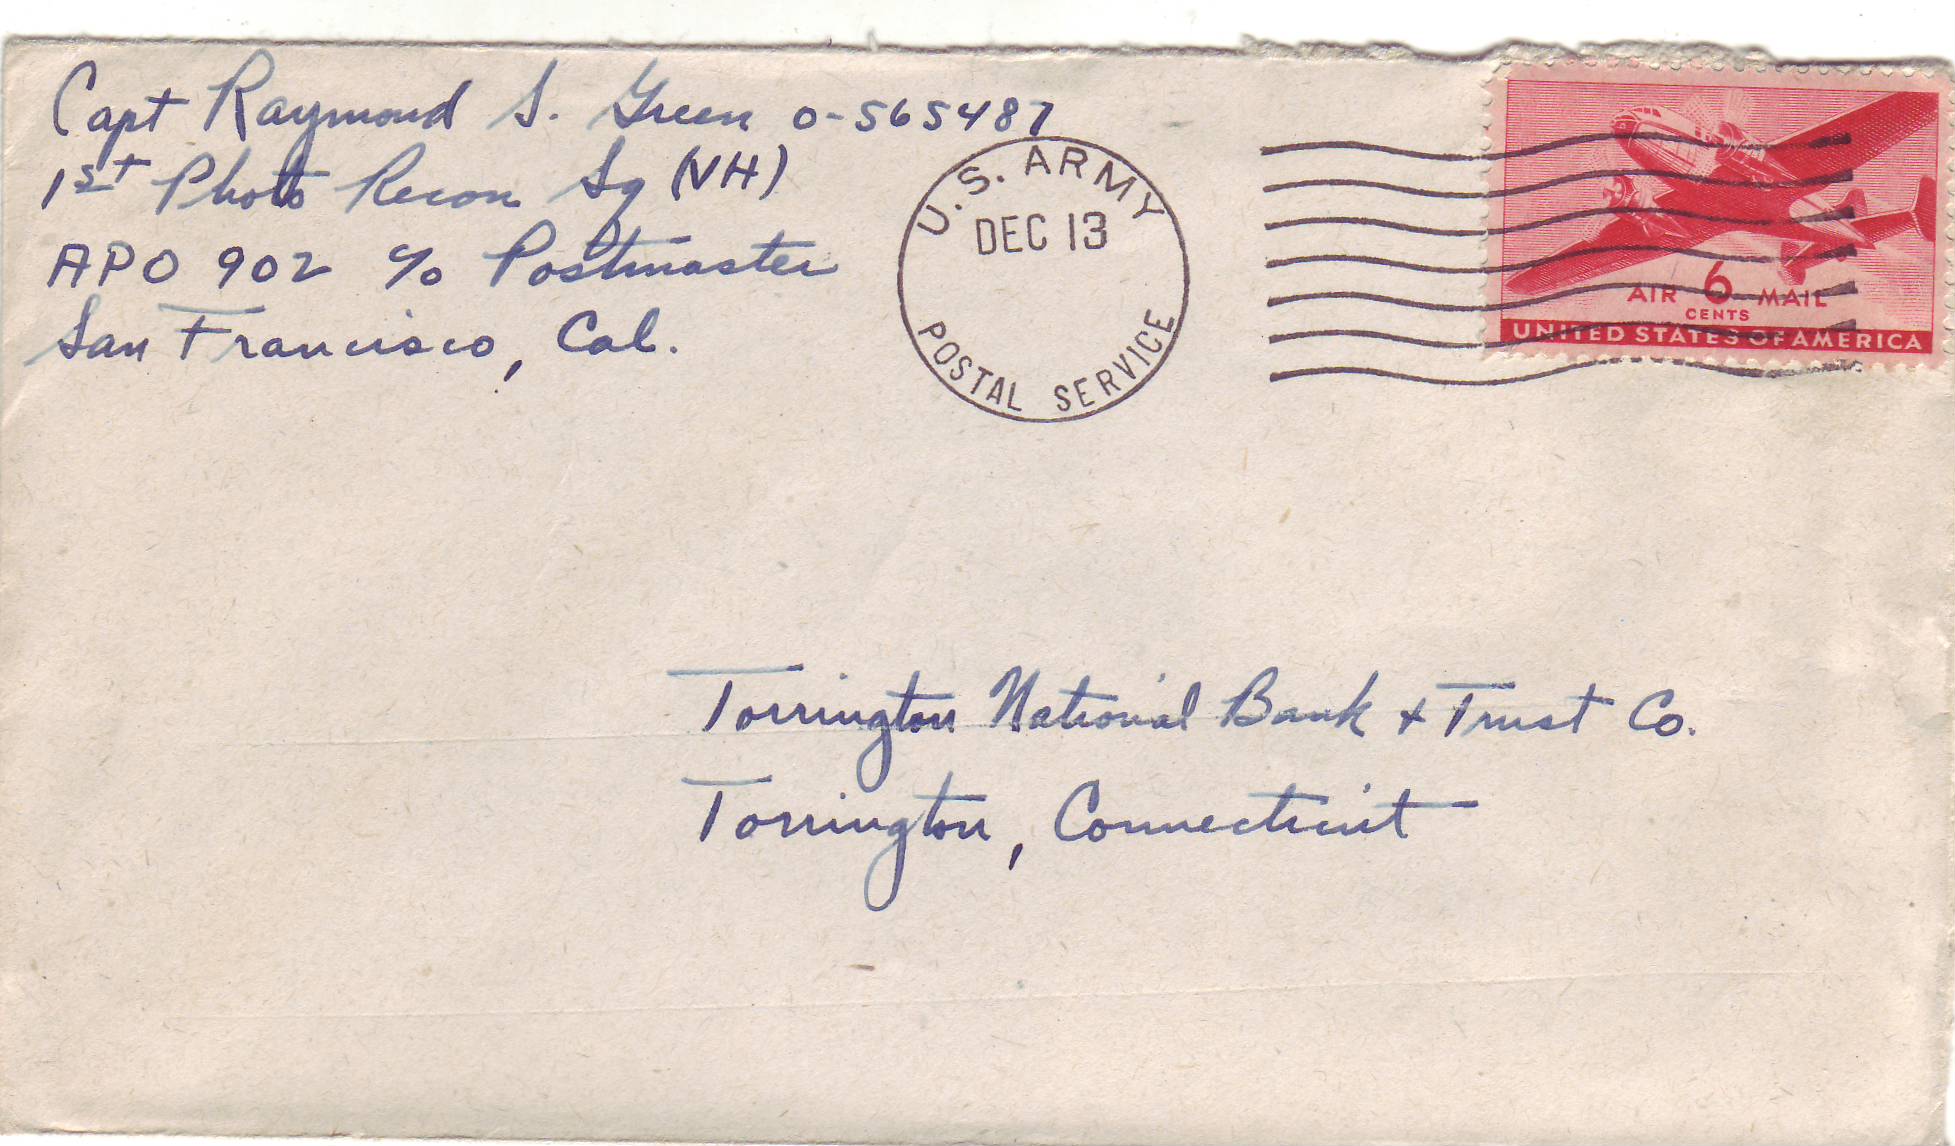 Capt Raymond S. Green O-565487
1st Photo Recon Sq (VH)
APO 902 c/o Postmaster
San Francisco, Cal.
U.S. ARMY
DEC 13
POSTAL SERVICE
AIR 6 MAIL
CENTS
UNITED STATES OF AMERICA
Torrington National Bank & Trust Co.
Torrington, Connecticut